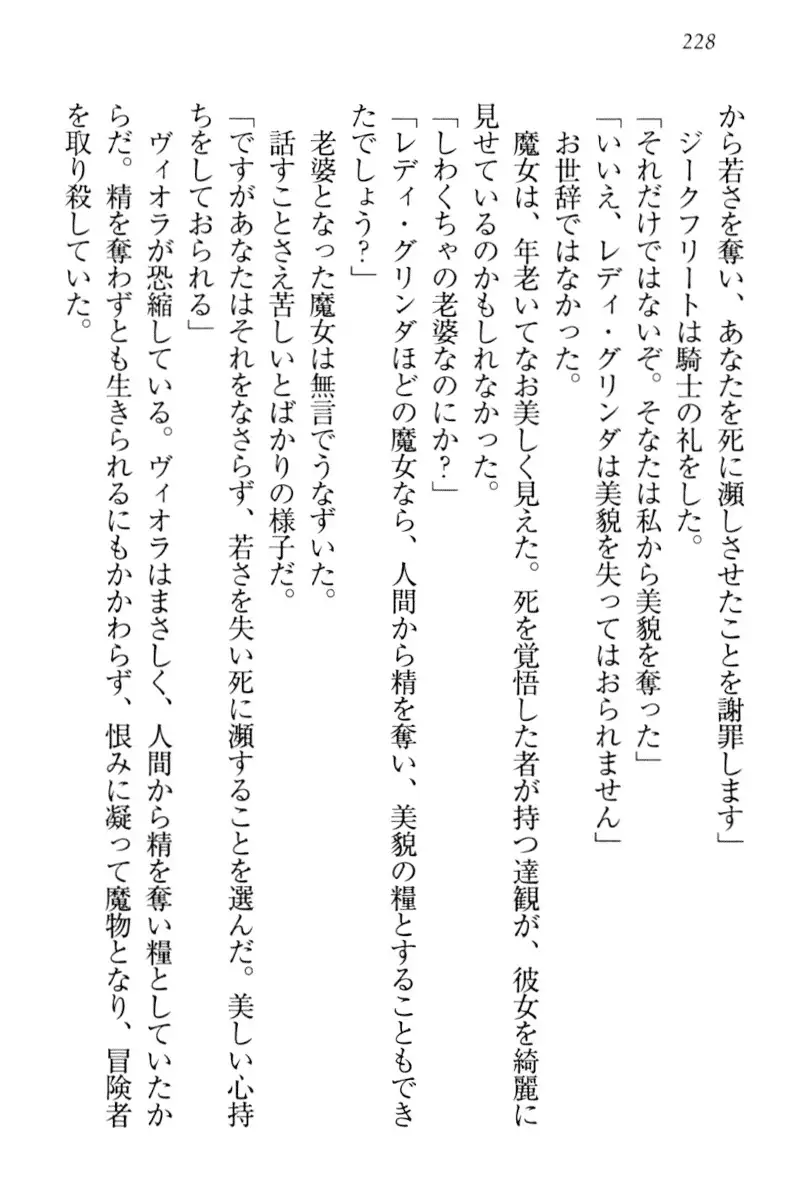 228
から若さを奪い、あなたを死に瀕しさせたことを謝罪します」
ジークフリートは騎士の礼をした。
「それだけではないぞ。そなたは私から美貌を奪った」
「いいえ、レディ・グリンダは美貌を失ってはおられません」
お世辞ではなかった。
魔女は、年老いてなお美しく見えた。死を覚悟した者が持つ達観が、彼女を綺麗に
見せているのかもしれなかった。
「しわくちゃの老婆なのにか?」
「レディ・グリンダほどの魔女なら、人間から精を奪い、美貌の糧とすることもでき
たでしょう?」
老婆となった魔女は無言でうなずいた。
話すことさえ苦しいとばかりの様子だ。
「ですがあなたはそれをなさらず、若さを失い死に瀕することを選んだ。美しい心持
ちをしておられる」
ヴィオラが恐縮している。ヴィオラはまさしく、人間から精を奪い糧としていたか
らだ。精を奪わずとも生きられるにもかかわらず、恨みに凝って魔物となり、冒険者
を取り殺していた。